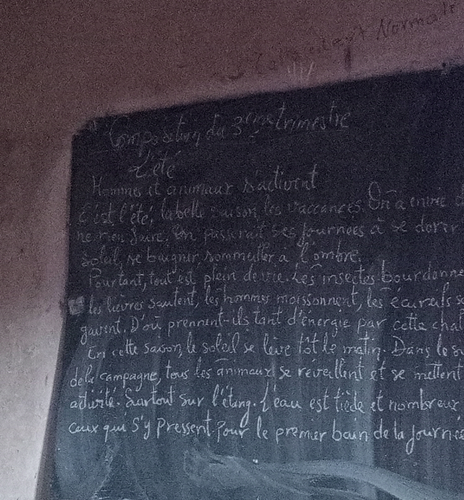 Normale
Composition du 3ème trimestre
L'été
Hommes et animaux s'activent
C'est l'été, la belle saison, les vaccances. On a envie d
ne rien faire. On passerait ses journées à se dorer
soleil, se baigner sommeiller à l'ombre.
Pourtant, tout est plein de vie. Les insectes bourdonne
les lievres sautent, les hommes moissonnent, les écureils s
guirent. D'où prennent-ils tant d'énergie par cette chal
En cette saison, le soleil se lève tôt le matin. Dans le s
de la campagne, tous les animaux se reveillent et se mettent
activité. Surtout sur l'étang. L'eau est tiède et nombreux
ceux qui s'y pressent pour le premier bain de la journée